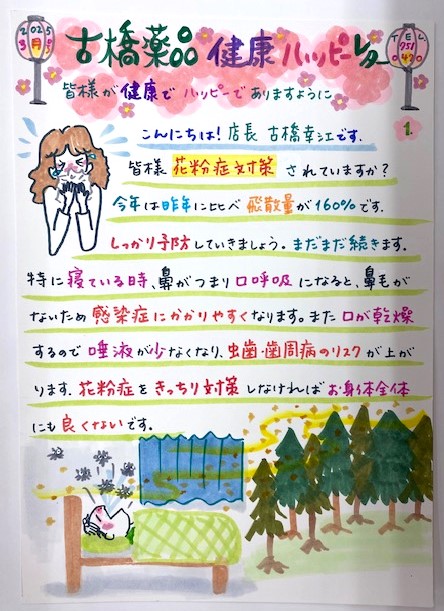 2025 3月
古橋薬品 健康 ハッピーレター
TEL 751 0470
皆様が健康で ハッピーで ありますように
1.
こんにちは! 店長 古橋幸江です.
皆様 花粉症対策 されていますか?
今年は昨年に比べ 飛散量が160%です.
しっかり予防していきましょう。まだまだ続きます.
特に寝ている時、鼻がつまり口呼吸になると、鼻毛が
ないため感染症にかかりやすくなります。また口が乾燥
するので唾液が少なくなり、虫歯・歯周病のリスクが上が
ります. 花粉症をきっちり対策しなければお身体全体
にも良くないです.